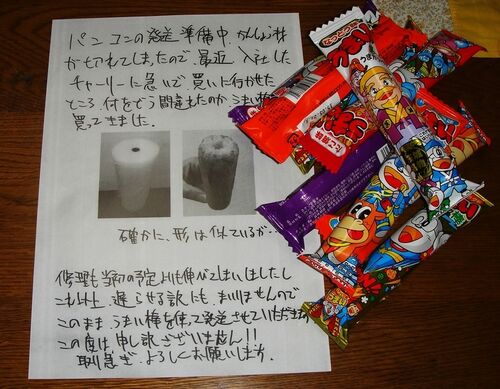 パソコンの発送準備中、かんしょう材
がきれてしまったので、最近入社した
チャーリーに急いで買いに行かせた
ところ、何をどう間違えたのかうまい棒を
買ってきました。
確かに、形は似ているが…
修理も当初の予定よりも伸べてしまいましたし
これ以上、遅らせる訳にもまいりませんので
このまま、うまい棒を使って発送させていただきます
この度は申し訳ございません!!
取り急ぎ、よろしくお願いします。